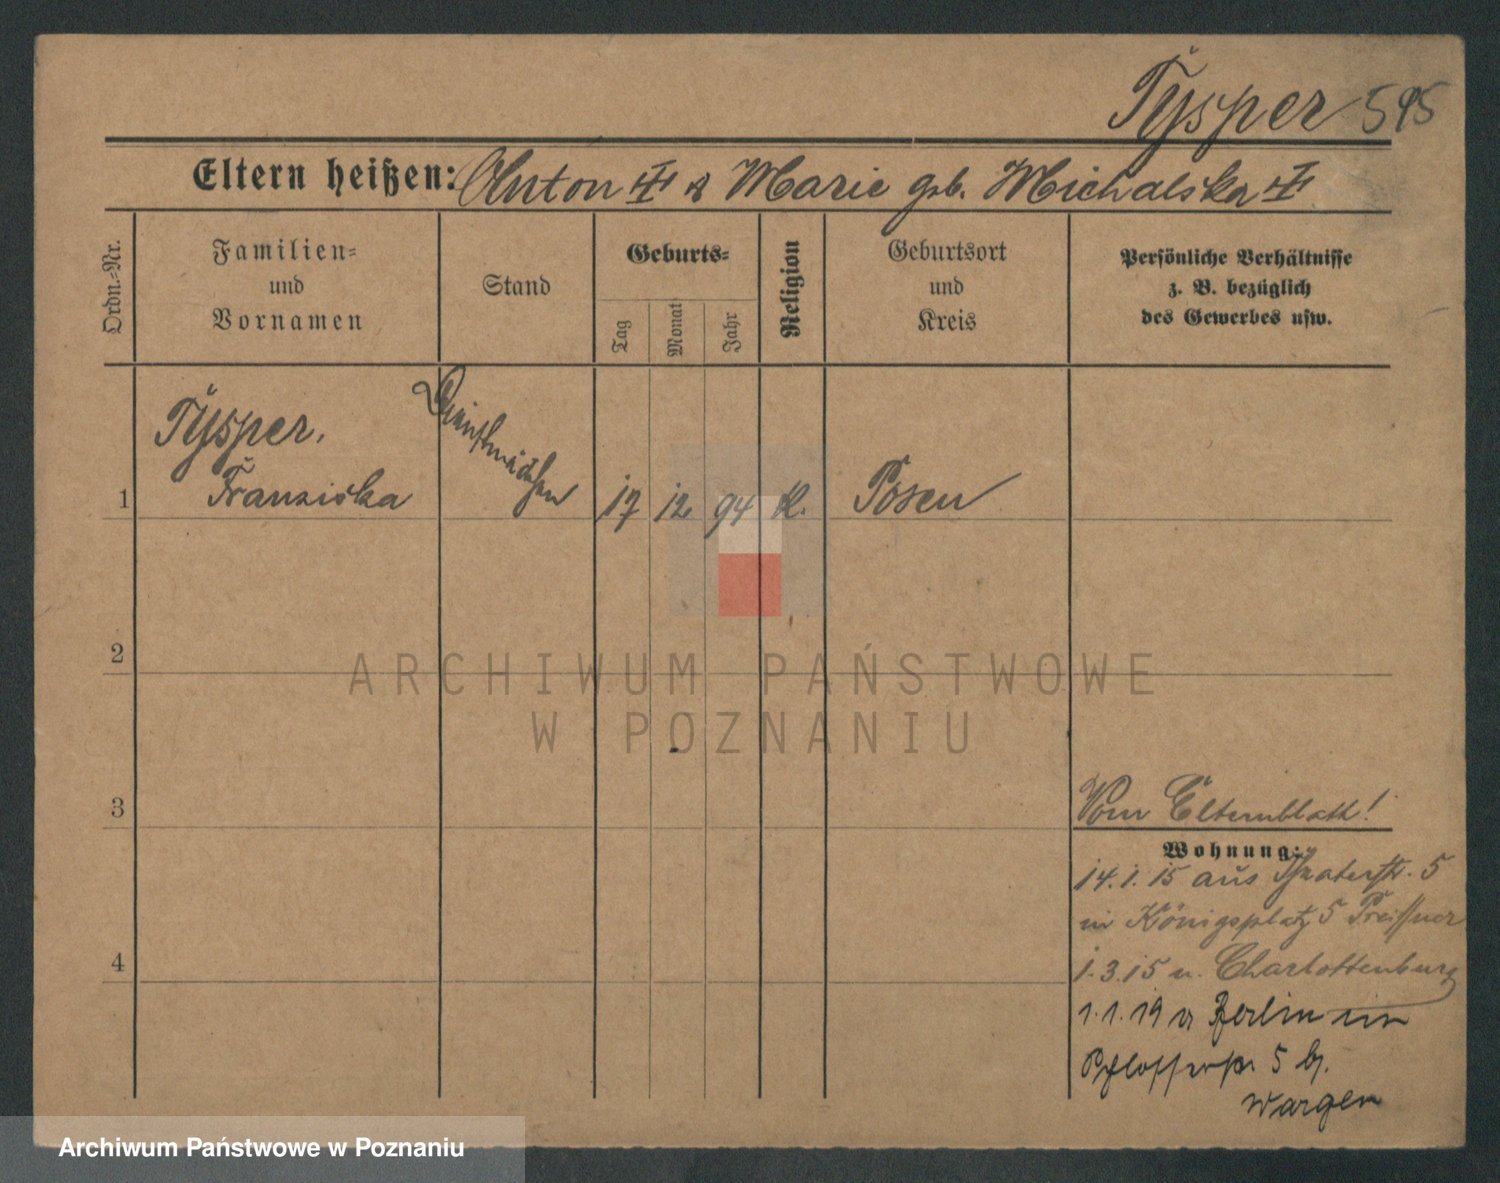 Tysper 595
Eltern heißen: Anton & Marie geb. Michalska
Ordn.-Nr.
Familien-
und
Vornamen
Stand
Geburts-
Tag
Monat
Jahr
Religion
Geburtsort
und
Kreis
Persönliche Verhältnisse
z. B. bezüglich
des Gewerbes usw.
1
Tysper,
Franziska
Dienstmädchen
17
12
94
K.
Posen
2
3
4
Vom Elternblatt!
Wohnung:
14.1.15 aus Theaterstr. 5
in Königsplatz 5
1.3.15 n. Charlottenburg
1.1.19 v Berlin in
Schlosserstr. 5 b.
Wargen
ARCHIWUM PAŃSTWOWE
W POZNANIU
Archiwum Państwowe w Poznaniu